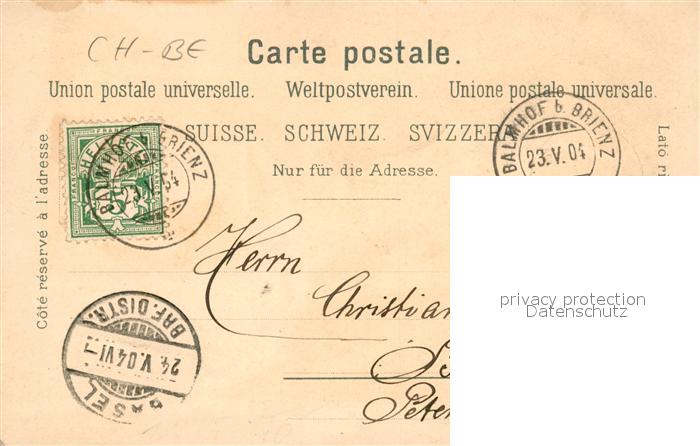 CH-BE
Carte postale.
Union postale universelle. Weltpostverein. Unione postale universale.
SUISSE. SCHWEIZ. SVIZZERA
Nur für die Adresse.
Côté réservé à l'adresse.
Lato ri
BALMHOF b. BRIENZ
23.V.04
BALMHOF BRIENZ
23.V.04
HEL
5
Herrn
Christian
Peter
BASEL
BRF. DISTR.
24.V.04 VI-
privacy protection
Datenschutz